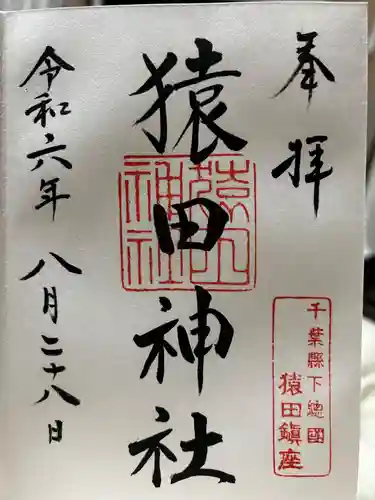 奉拝
猿田神社
令和六年
八月二十八日
猿田
神社
千葉縣下總國
猿田鎭座